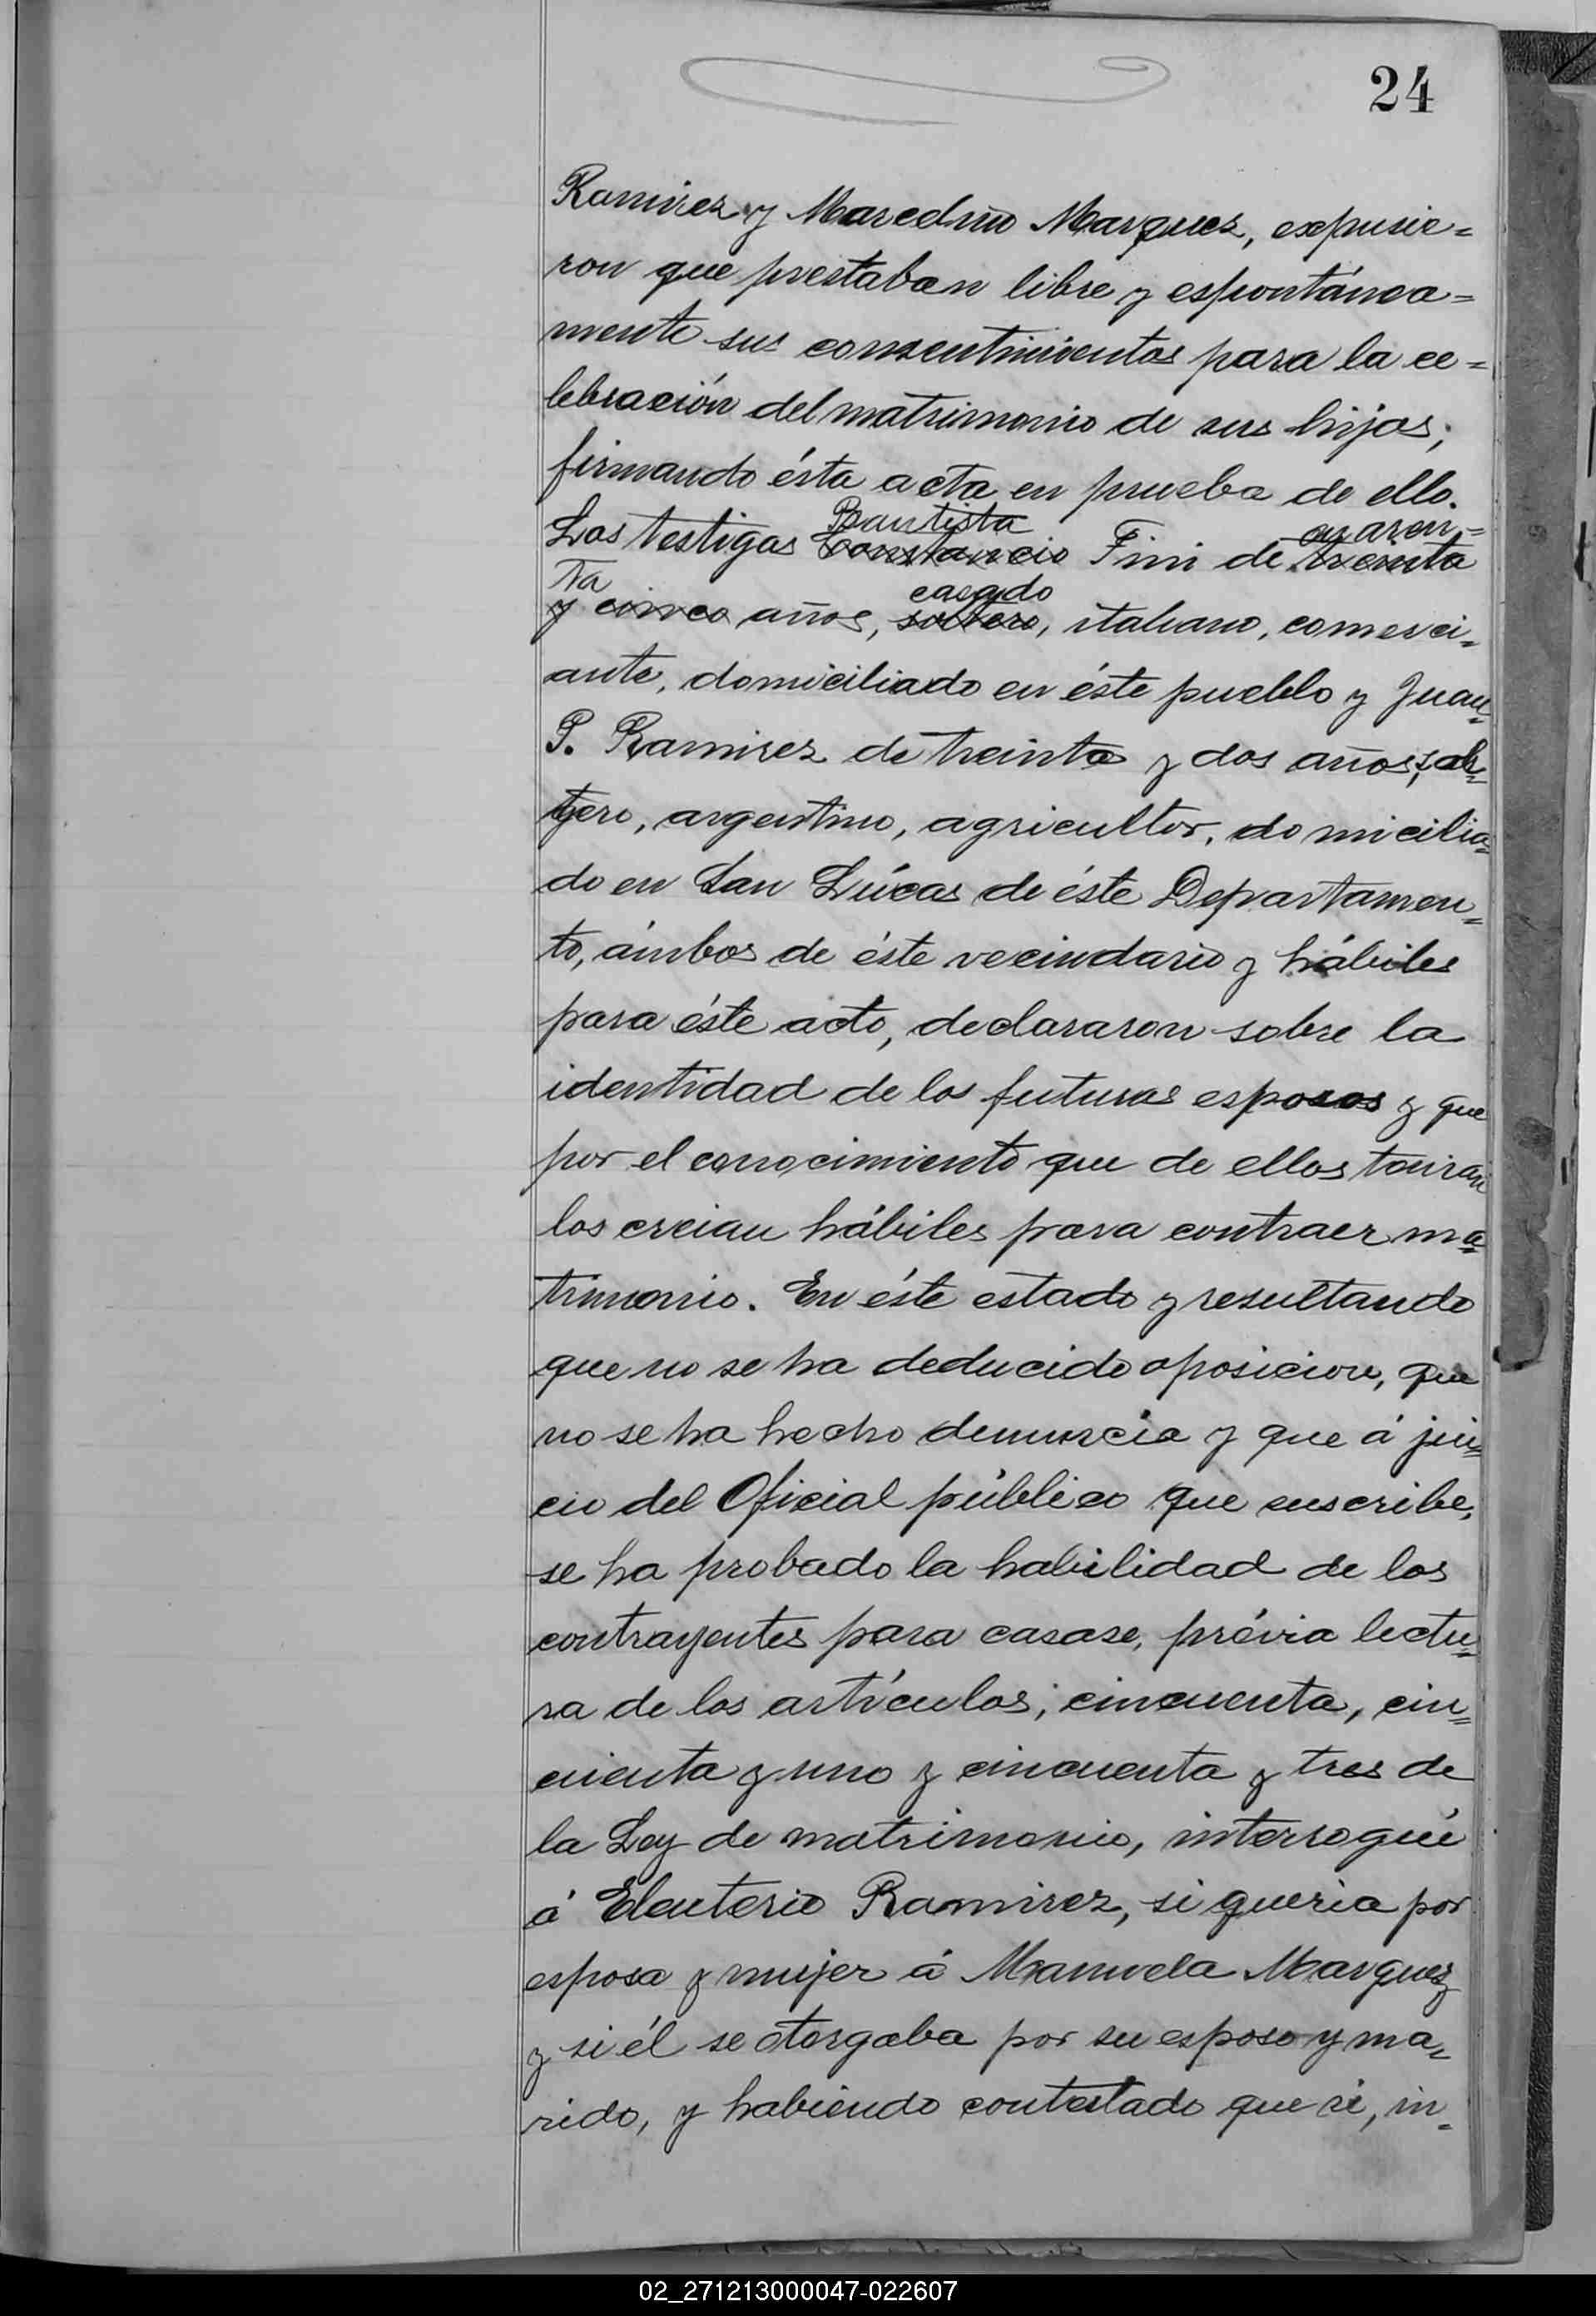 24
Ramirez y Marcelino Marquez, expusie=
ron que prestaban libre y espontánea=
mente sus consentimientos para la ce=
lebración del matrimonio de sus hijos;
firmando ésta acta en prueba de ello.
Bautista cuaren=
Los testigos Constancio Fini de treinta
ta casado
y cinco años, soltero, italiano, comerci=
ante, domiciliado en éste pueblo y Juan
P. Ramirez de treinta y dos años, sol=
tero, argentino, agricultor, domicilia=
do en San Lúcas de éste Departamen=
to, ámbos de éste vecindario y hábiles
para éste acto, declararon sobre la
identidad de los futuros esposos y que
por el conocimiento que de ellos tenian
los creian hábiles para contraer ma=
trimonio. En éste estado y resultando
que no se ha deducido oposicion, que
no se ha hecho denuncia y que á jui=
cio del Oficial público que suscribe,
se ha probado la habilidad de los
contrayentes para casase, prévia lectu=
ra de los artículos; cincuenta, cin=
cuenta y uno y cincuenta y tres de
la Ley de matrimonio, interrogué
á Eleuterio Ramirez, si queria por
esposa y mujer á Manuela Marquez
y si él se otorgaba por su esposo y ma=
rido, y habiendo contestado que si, in=
02_271213000047-022607